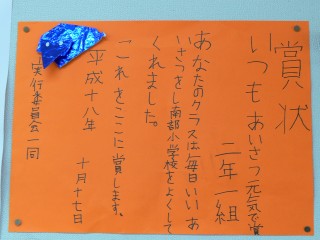 賞状
いつもあいさつ元気で賞
二年一組
あなたのクラスは毎日いいあ
いさつをし南部小学校をよくして
くれました。
これをここに賞します。
平成十八年
十月十七日
実行委員会一同